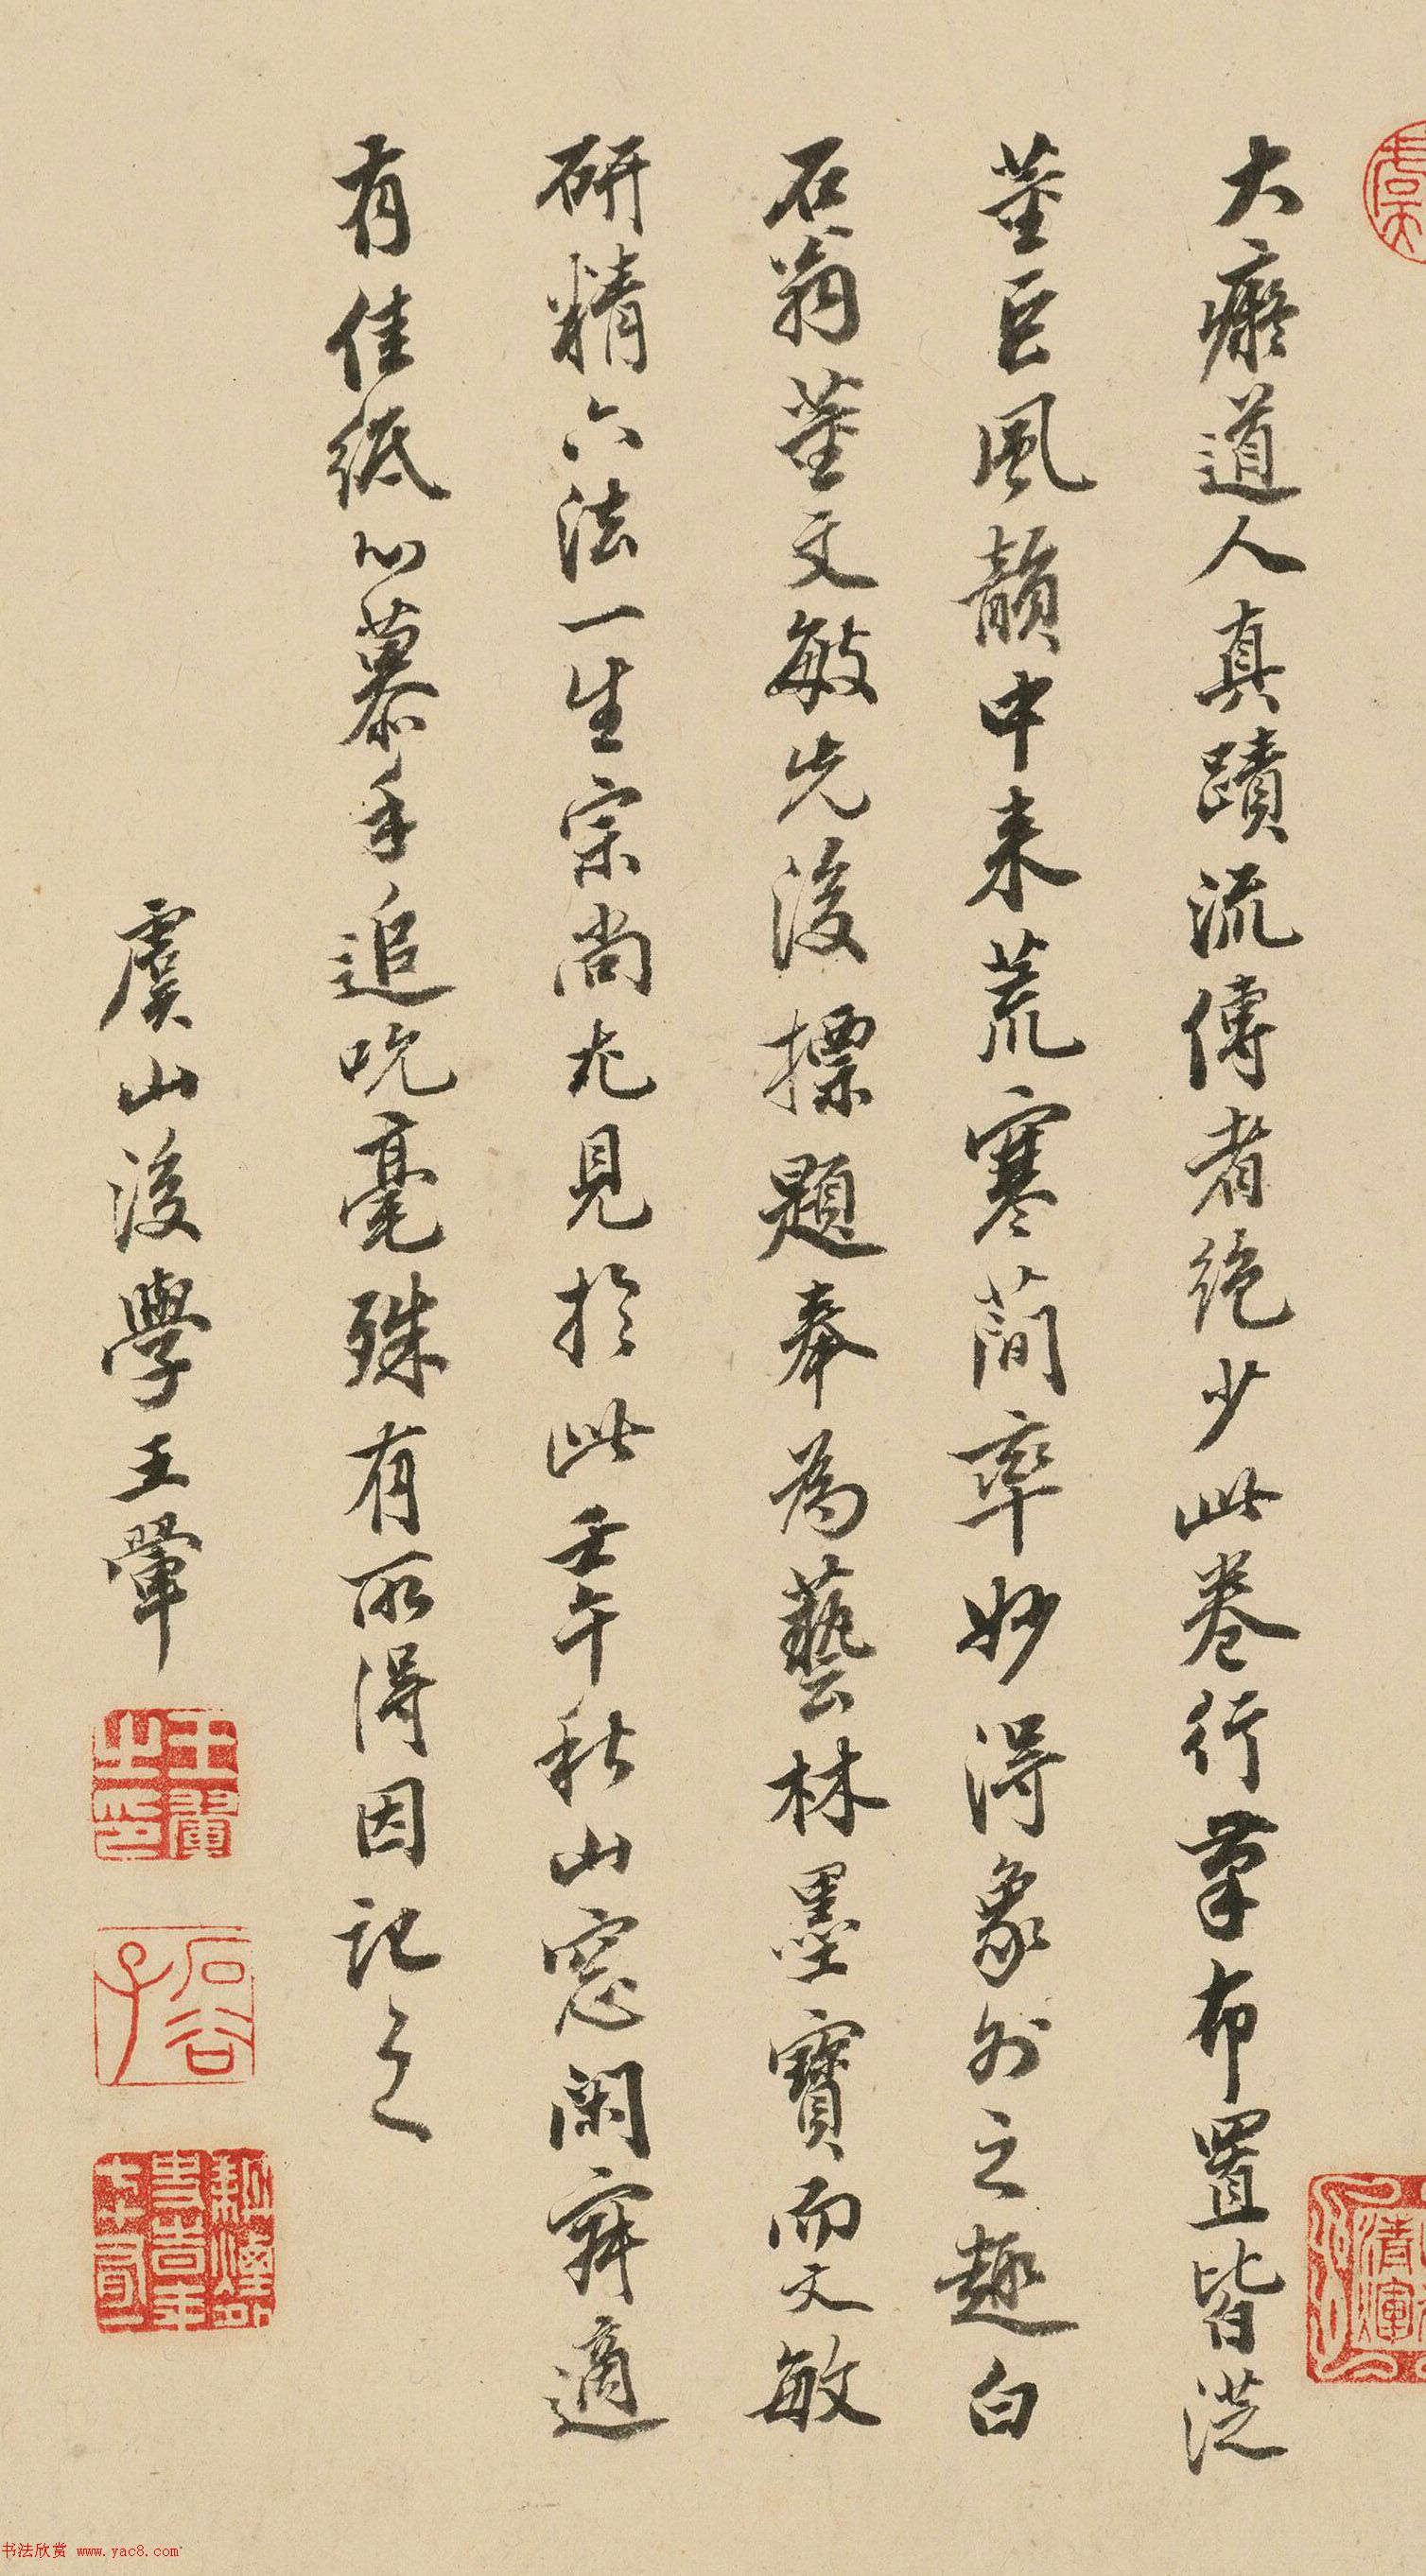 大癡道人真蹟流傳者絕少此卷行筆布置皆從
董巨風韻中来荒寒蕳率妙得象外之趣白
石翁董文敏先後摽題奉為藝林墨寶而文敏
研精六法一生宗尚尤見於此壬午秋山窓閑寂適
有佳紙心慕手追吮毫殊有所得因記之
虞山後學王翬
王翬之印
石谷子
書法欣赏 www.yac8.com